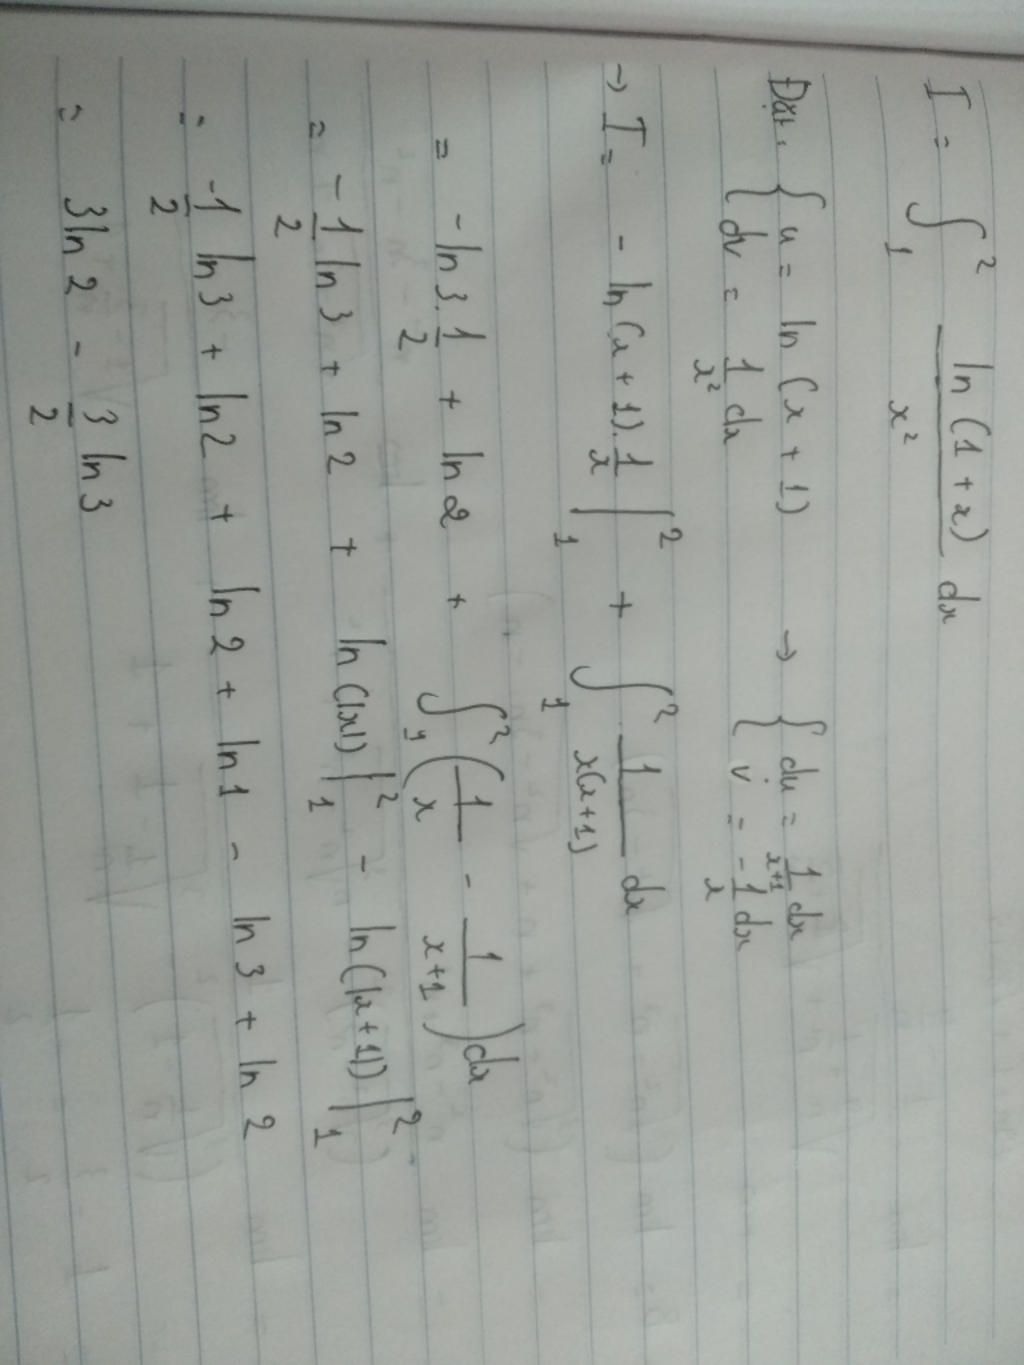 I = ∫₁² ln(1+x)/x² dx
Đặt. { u = ln(x+1) → { du = 1/(x+1) dx
{ dv = 1/x² dx { v = -1/x dx
→ I = - ln(x+1).1/x |₁² + ∫₁² 1/(x(x+1)) dx
= -ln3.1/2 + ln2 + ∫₁² (1/x - 1/(x+1)) dx
= -1/2 ln3 + ln2 + ln(|x|)|₁² - ln(|x+1|)|₁²
= -1/2 ln3 + ln2 + ln2 + ln1 - ln3 + ln2
= 3ln2 - 3/2 ln3